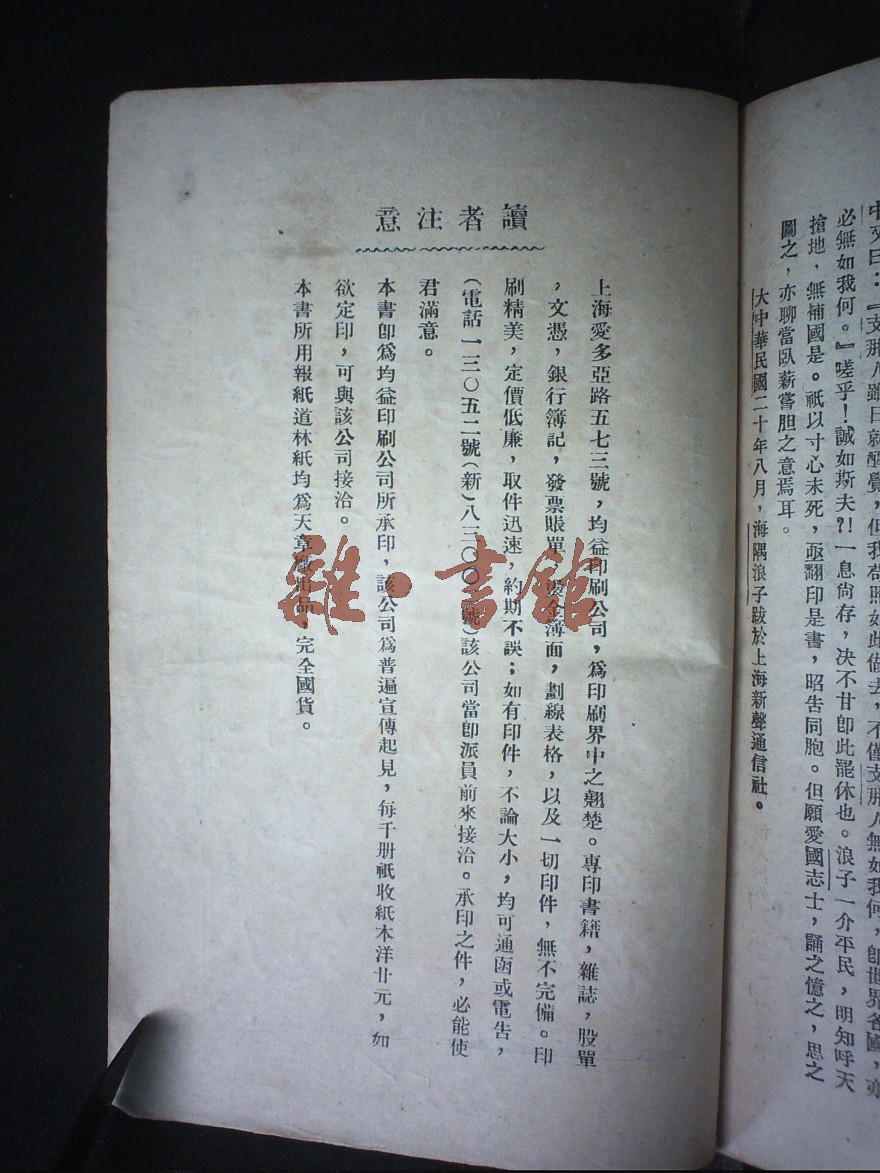 中又曰：『支那人雖日就醒覺，但我帝照如此做去，不僅支那人無如我何，卽世界各國，亦
必無如我何。』嗟乎！誠如斯夫？！一息尙存，決不甘卽此罷休也。浪子一介平民，明知呼天
搶地，無補國是。祇以寸心未死，亟翻印是書，昭吿同胞。但願愛國志士，誦之憶之，思之
圖之，亦聊當臥薪嘗胆之意焉耳。
大中華民國二十年八月，海隅浪子跋於上海新聲通信社。
讀者注意
上海愛多亞路五七三號，均益印刷公司，爲印刷界中之翹楚。專印書籍，雜誌，股單
，文憑，銀行簿記，發票賬單，燙金簿面，劃線表格，以及一切印件，無不完備。印
刷精美，定價低廉，取件迅速，約期不誤；如有印件，不論大小，均可通函或電吿，
（電話一三〇五二號（新）八三〇〇號）該公司當卽派員前來接洽。承印之件，必能使
君滿意。
本書卽爲均益印刷公司所承印，該公司爲普遍宣傳起見，每千册祇收紙本洋廿元，如
欲定印，可與該公司接洽。
本書所用報紙道林紙均爲天章廠出品，完全國貨。
雜·書館